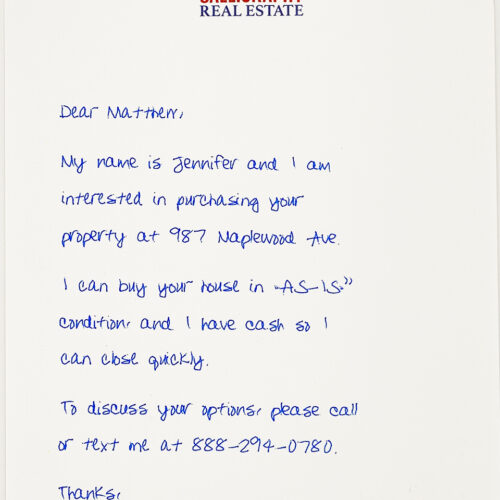 REAL ESTATE
Dear Matthew,
My name is Jennifer and I am
interested in purchasing your
property at 987 Maplewood Ave.
I can buy your house in "AS-IS"
condition, and I have cash so I
can close quickly.
To discuss your options, please call
or text me at 888-294-0780.
Thanks,